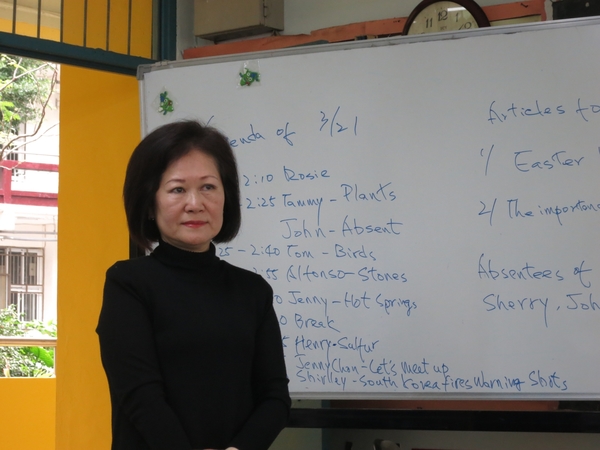 enda of 3/21
2:10 Rosie
2:25 Tammy - Plants
John - Absent
25 - 2:40 Tom - Birds
2:55 Alfonso - Stones
0 Jenny - Hot Springs
0 Break
Henry - Sulfur
Jenny Chen - Let's meat up
Shirley - South Korea fires warning shots
Articles to
1) Easter
2) The importan
Absentees of
Sherry, Joh
12
11
10
9
1
2
3